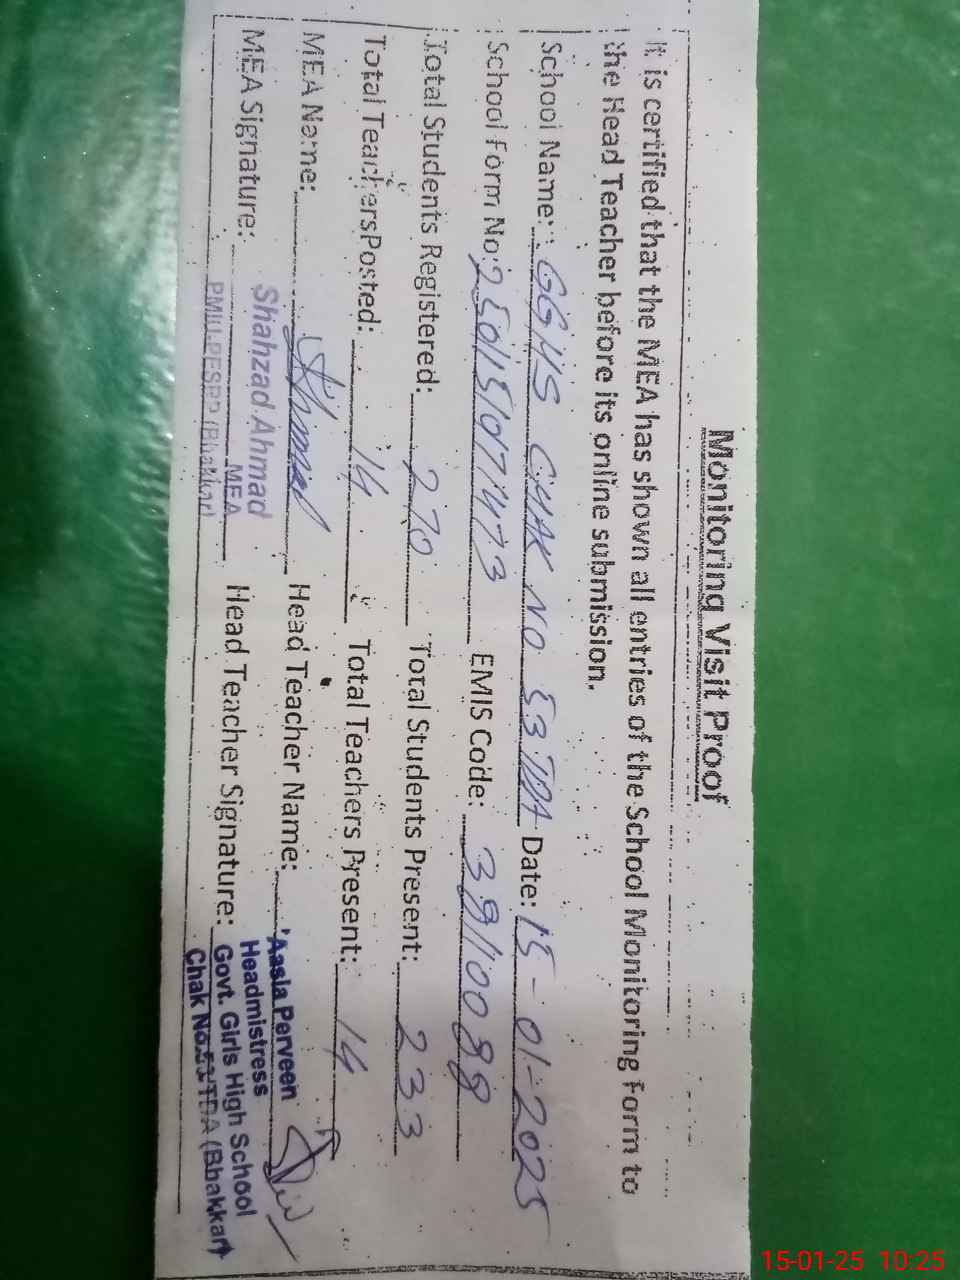 Monitoring Visit Proof
It is certified that the MEA has shown all entries of the School Monitoring Form to
the Head Teacher before its online submission.
School Name: GGHS CHAK NO 53 TDA Date: 15-01-2025
School Form No: EMIS Code: 39110088
Total Students Registered: 270 Total Students Present: 233
Total Teachers Posted: 14 Total Teachers Present: 14
MEA Name: Ahmad Head Teacher Name:
MEA Signature: Head Teacher Signature:
Shahzad Ahmad
MEA
PMIU-PESRP (Bhakkar)
Aasia Perveen
Headmistress
Govt. Girls High School
Chak No.53 TDA (Bhakkar)
15-01-25 10:25